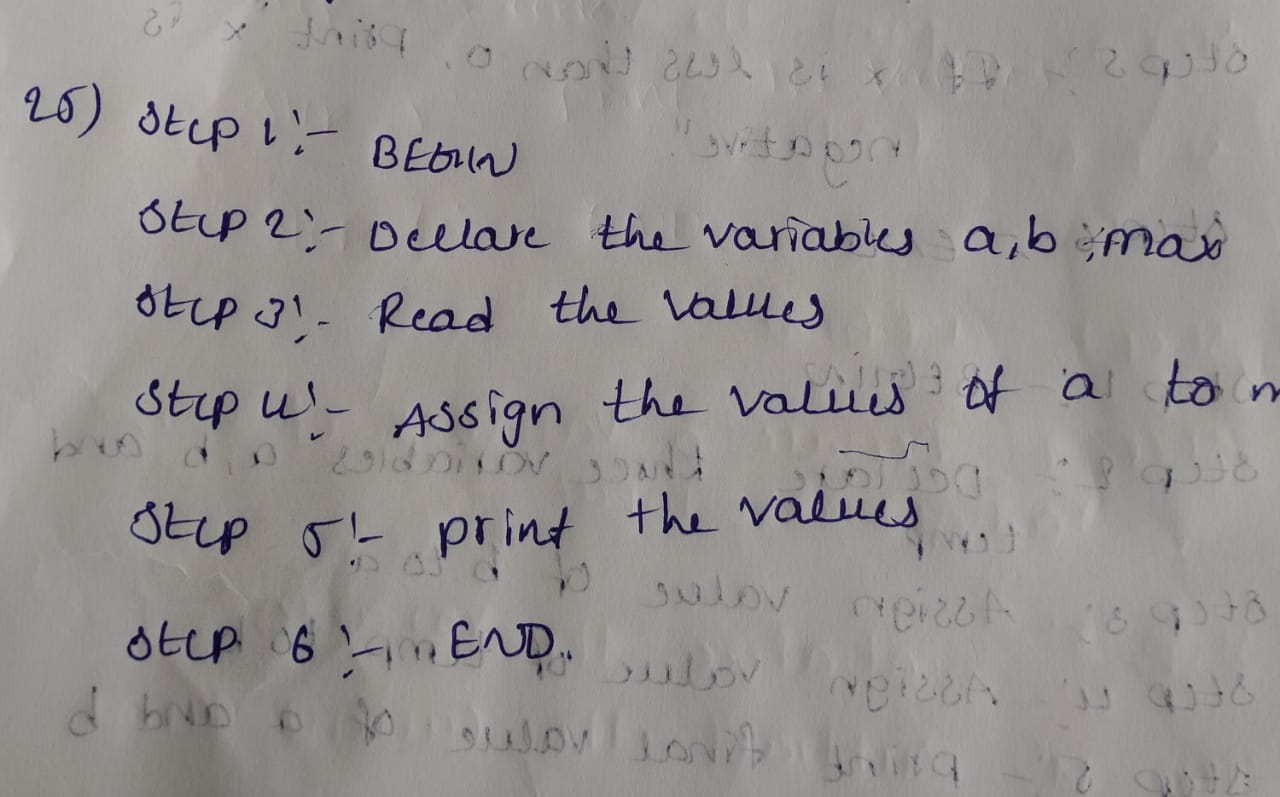 25) Step 1:- BEGIN
Step 2:- Declare the variables a,b ;max
Step 3:- Read the values
Step 4:- Assign the values of a to m
Step 5:- print the values
Step 6:- END.